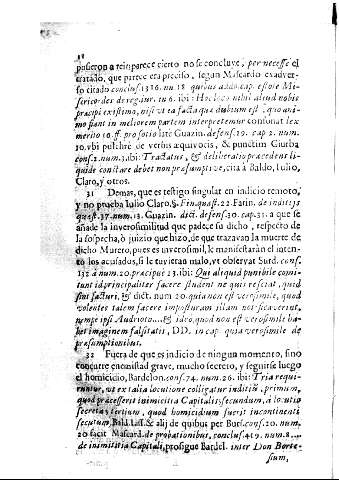 18
pusieron a rein parece cierto no se concluye, per necesse el
tratado, que parece era preciso, segun Mascardo ex adver-
so citado conclus. 1326. nu 18 quibus addo cap. estote Mi-
sericordes de regu. iur. in 6. ibi: Hoc loco nihil aliud nobis
præcipi existimo, nisi vt ea facta que dubium est, quo ani-
mo fiant in meliorem partem interpretemur consonat lex
merito 10. ff pro socio late Guazin. defens. 29. cap 2. num.
10. vbi pulchrè de verbis æquivocis, & punctim Giurba
cons. 2. num. 3. ibi: Tractatus, & deliberatio præcedens li-
quide constare debet non præsumptive, cita à Baldo, Iulio,
Claro, y otros.
31 Demas, que es testigo singular en indicio remoto,
y no prueba Iulio Claro, §. Fin. quæst. 22. Farin. de inditijs
quæst. 37. num. 13. Guazin. dict. defens. 30. cap. 31. a que se
añade la inverosimilitud que padece su dicho, respecto de
la sospecha, ò juizio que hizo, de que trazavan la muerte de
dicho Mureto, pues es inverosimil, le manifestàran el inten-
to los acusados, si le tuvieran malo, vt observat Surd. cons.
132 à num. 20. præcipuè 23. ibi: Qui aliquid punibile comi-
tunt id principaliter facere student ne qui resciat, quid
sint facturi, & dict. num 20. quia non est verosimile, quod
volentes talem facere imposturam illam notificaverint,
nempe ipsi Audrioto.... & ideo, quod non est verosimile ha-
bet imaginem falsitatis, DD. in cap. quia verosimile de
præsumptionibus.
32 Fuera de que es indicio de ningun momento, sino
concurre enemistad grave, mucho secreto, y seguirse luego
el homicidio, Bardelon. cons. 74. num. 26. ibi: Tria requi-
runtur, vt ex talia locutione colligatur inditiũ, primum,
quod præcesserit inimicitia Capitalis; secundum, à locutio
secreta; tertium, quod homicidium fuerit incontinenti
secutum, Bald. Iass. & alij de quibus per Burs. cons. 20. num.
20 facit Mascard. de probationibus, conclus. 419. num. 8....
de inimititia Capitali, prosigue Bardel. inter Don Borte-
sium,